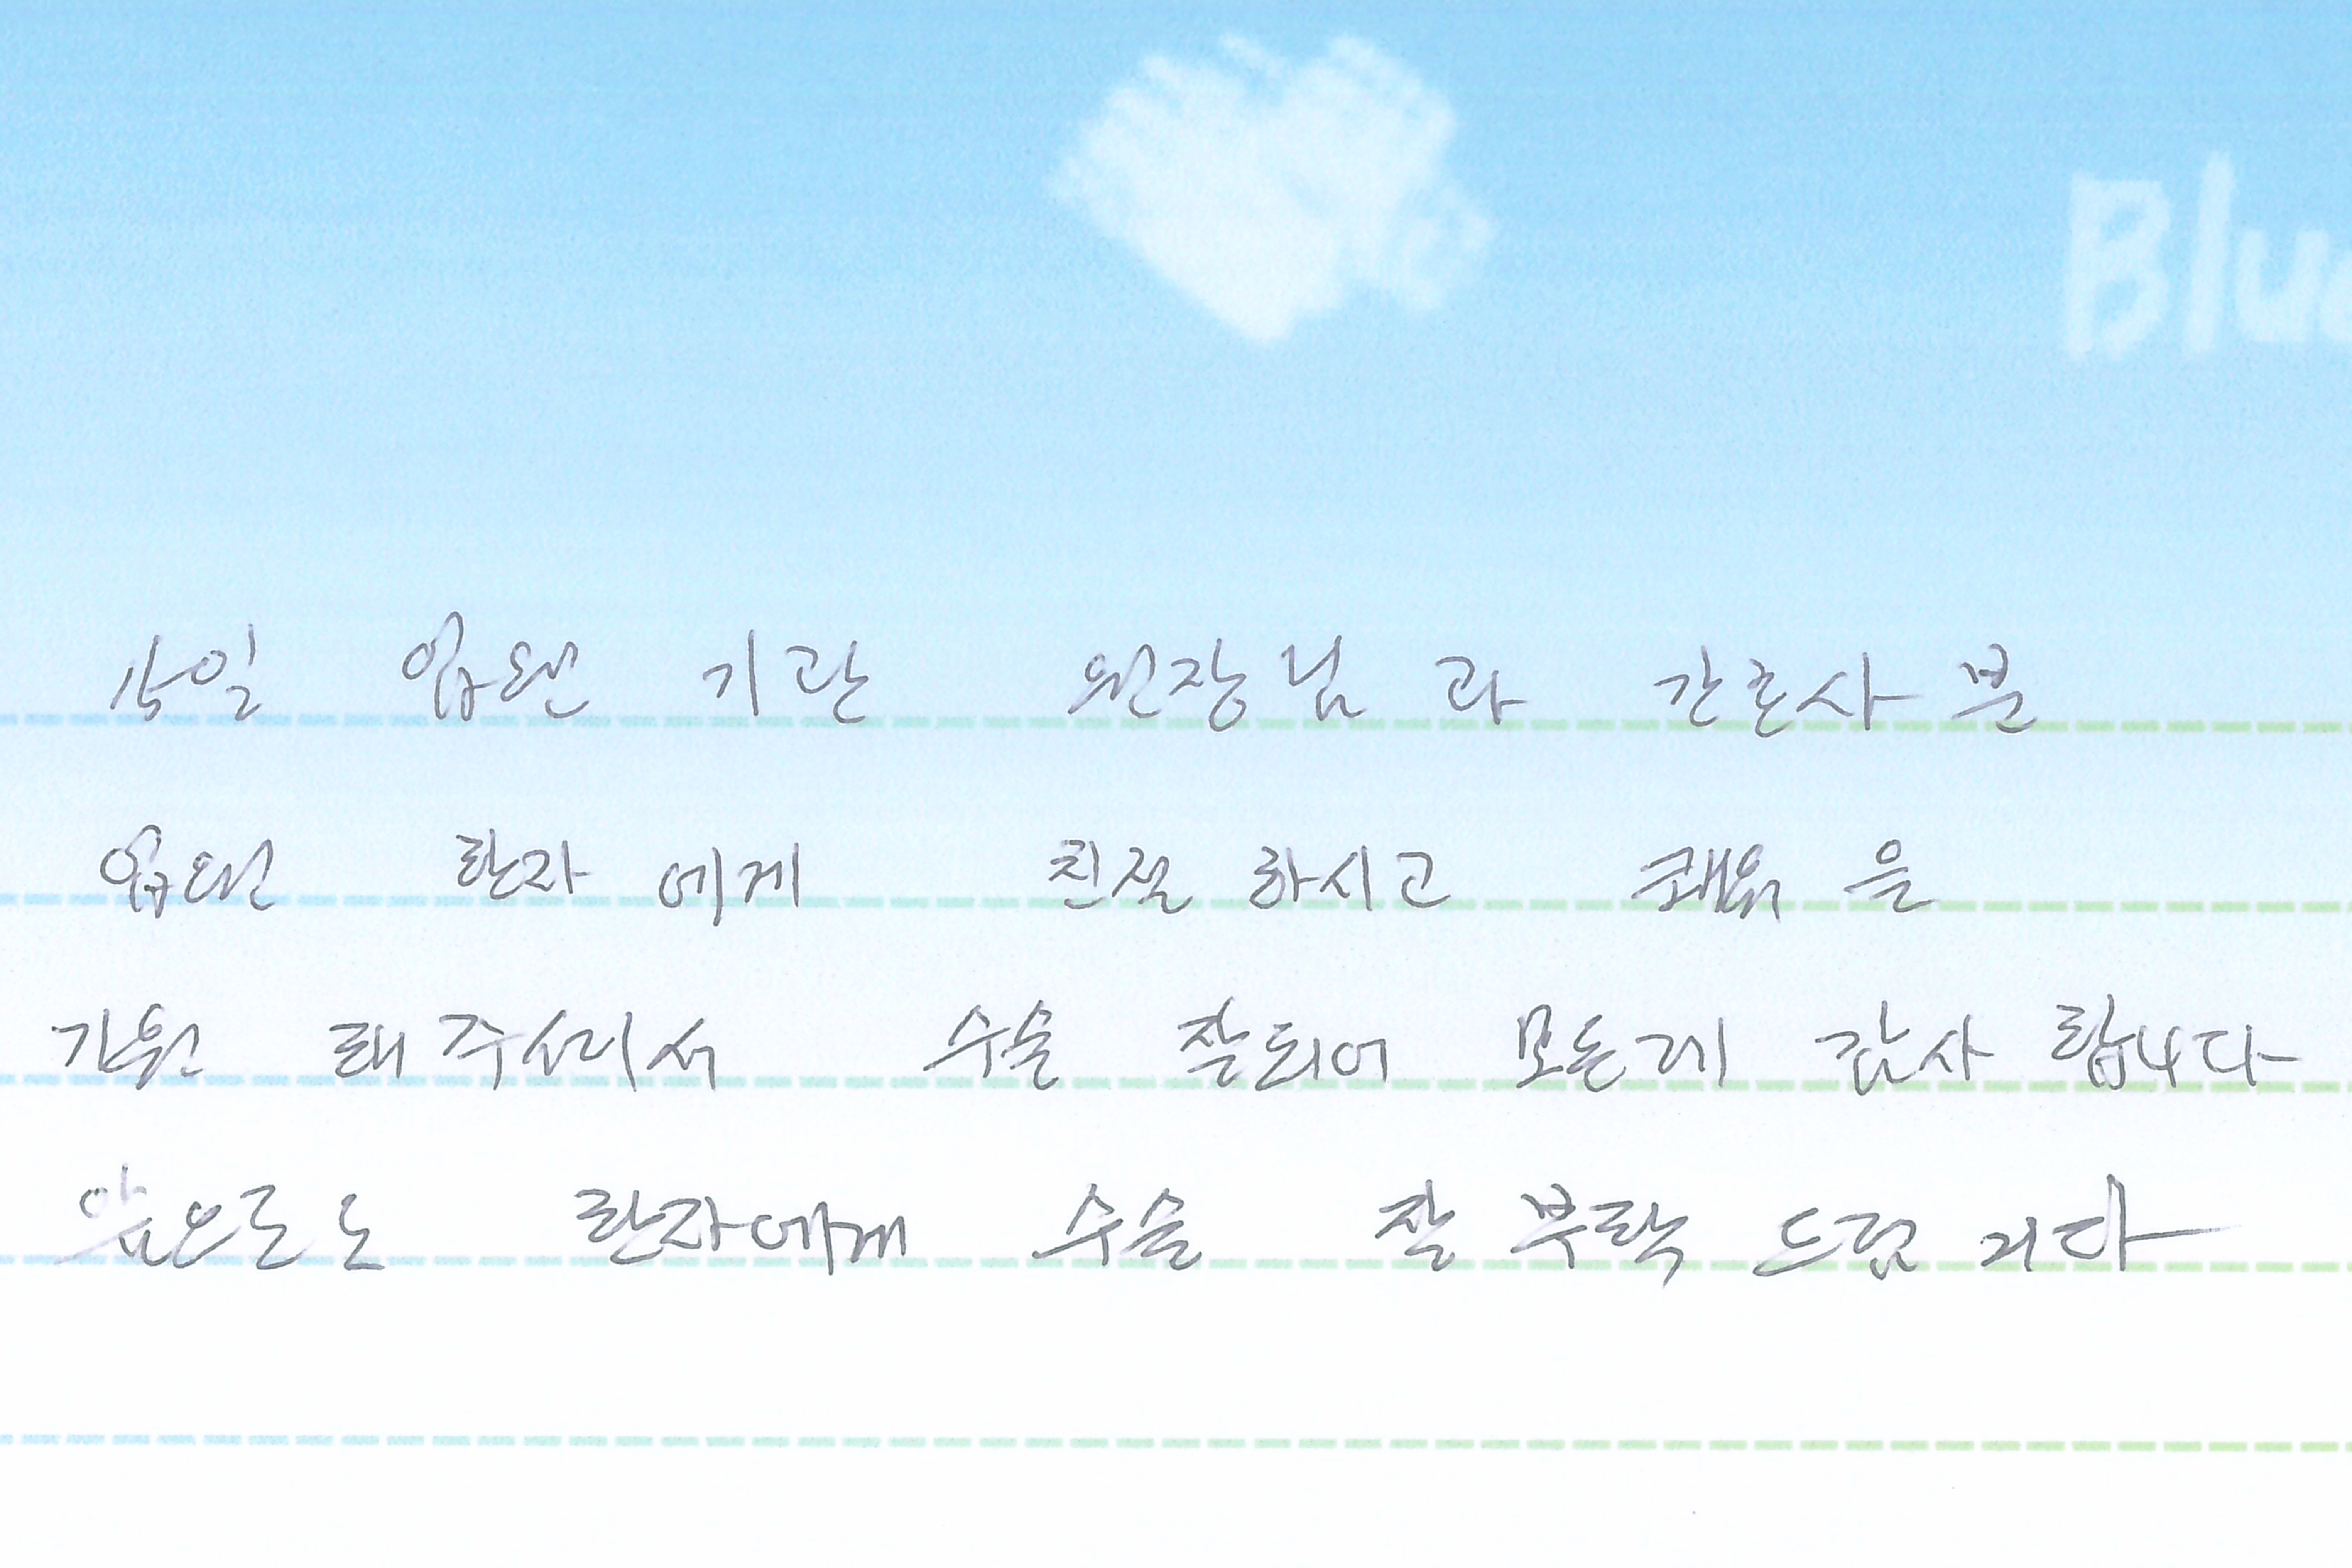 Blu
15일 입원 기관 원장님 과 간호사 분
입원 환자 에게 친절 하시고 쾌유 을
기원 해 주셔서 수술 잘되어 모든게 감사 합니다
앞으로도 환자에게 수술 잘 부탁 드림 니다